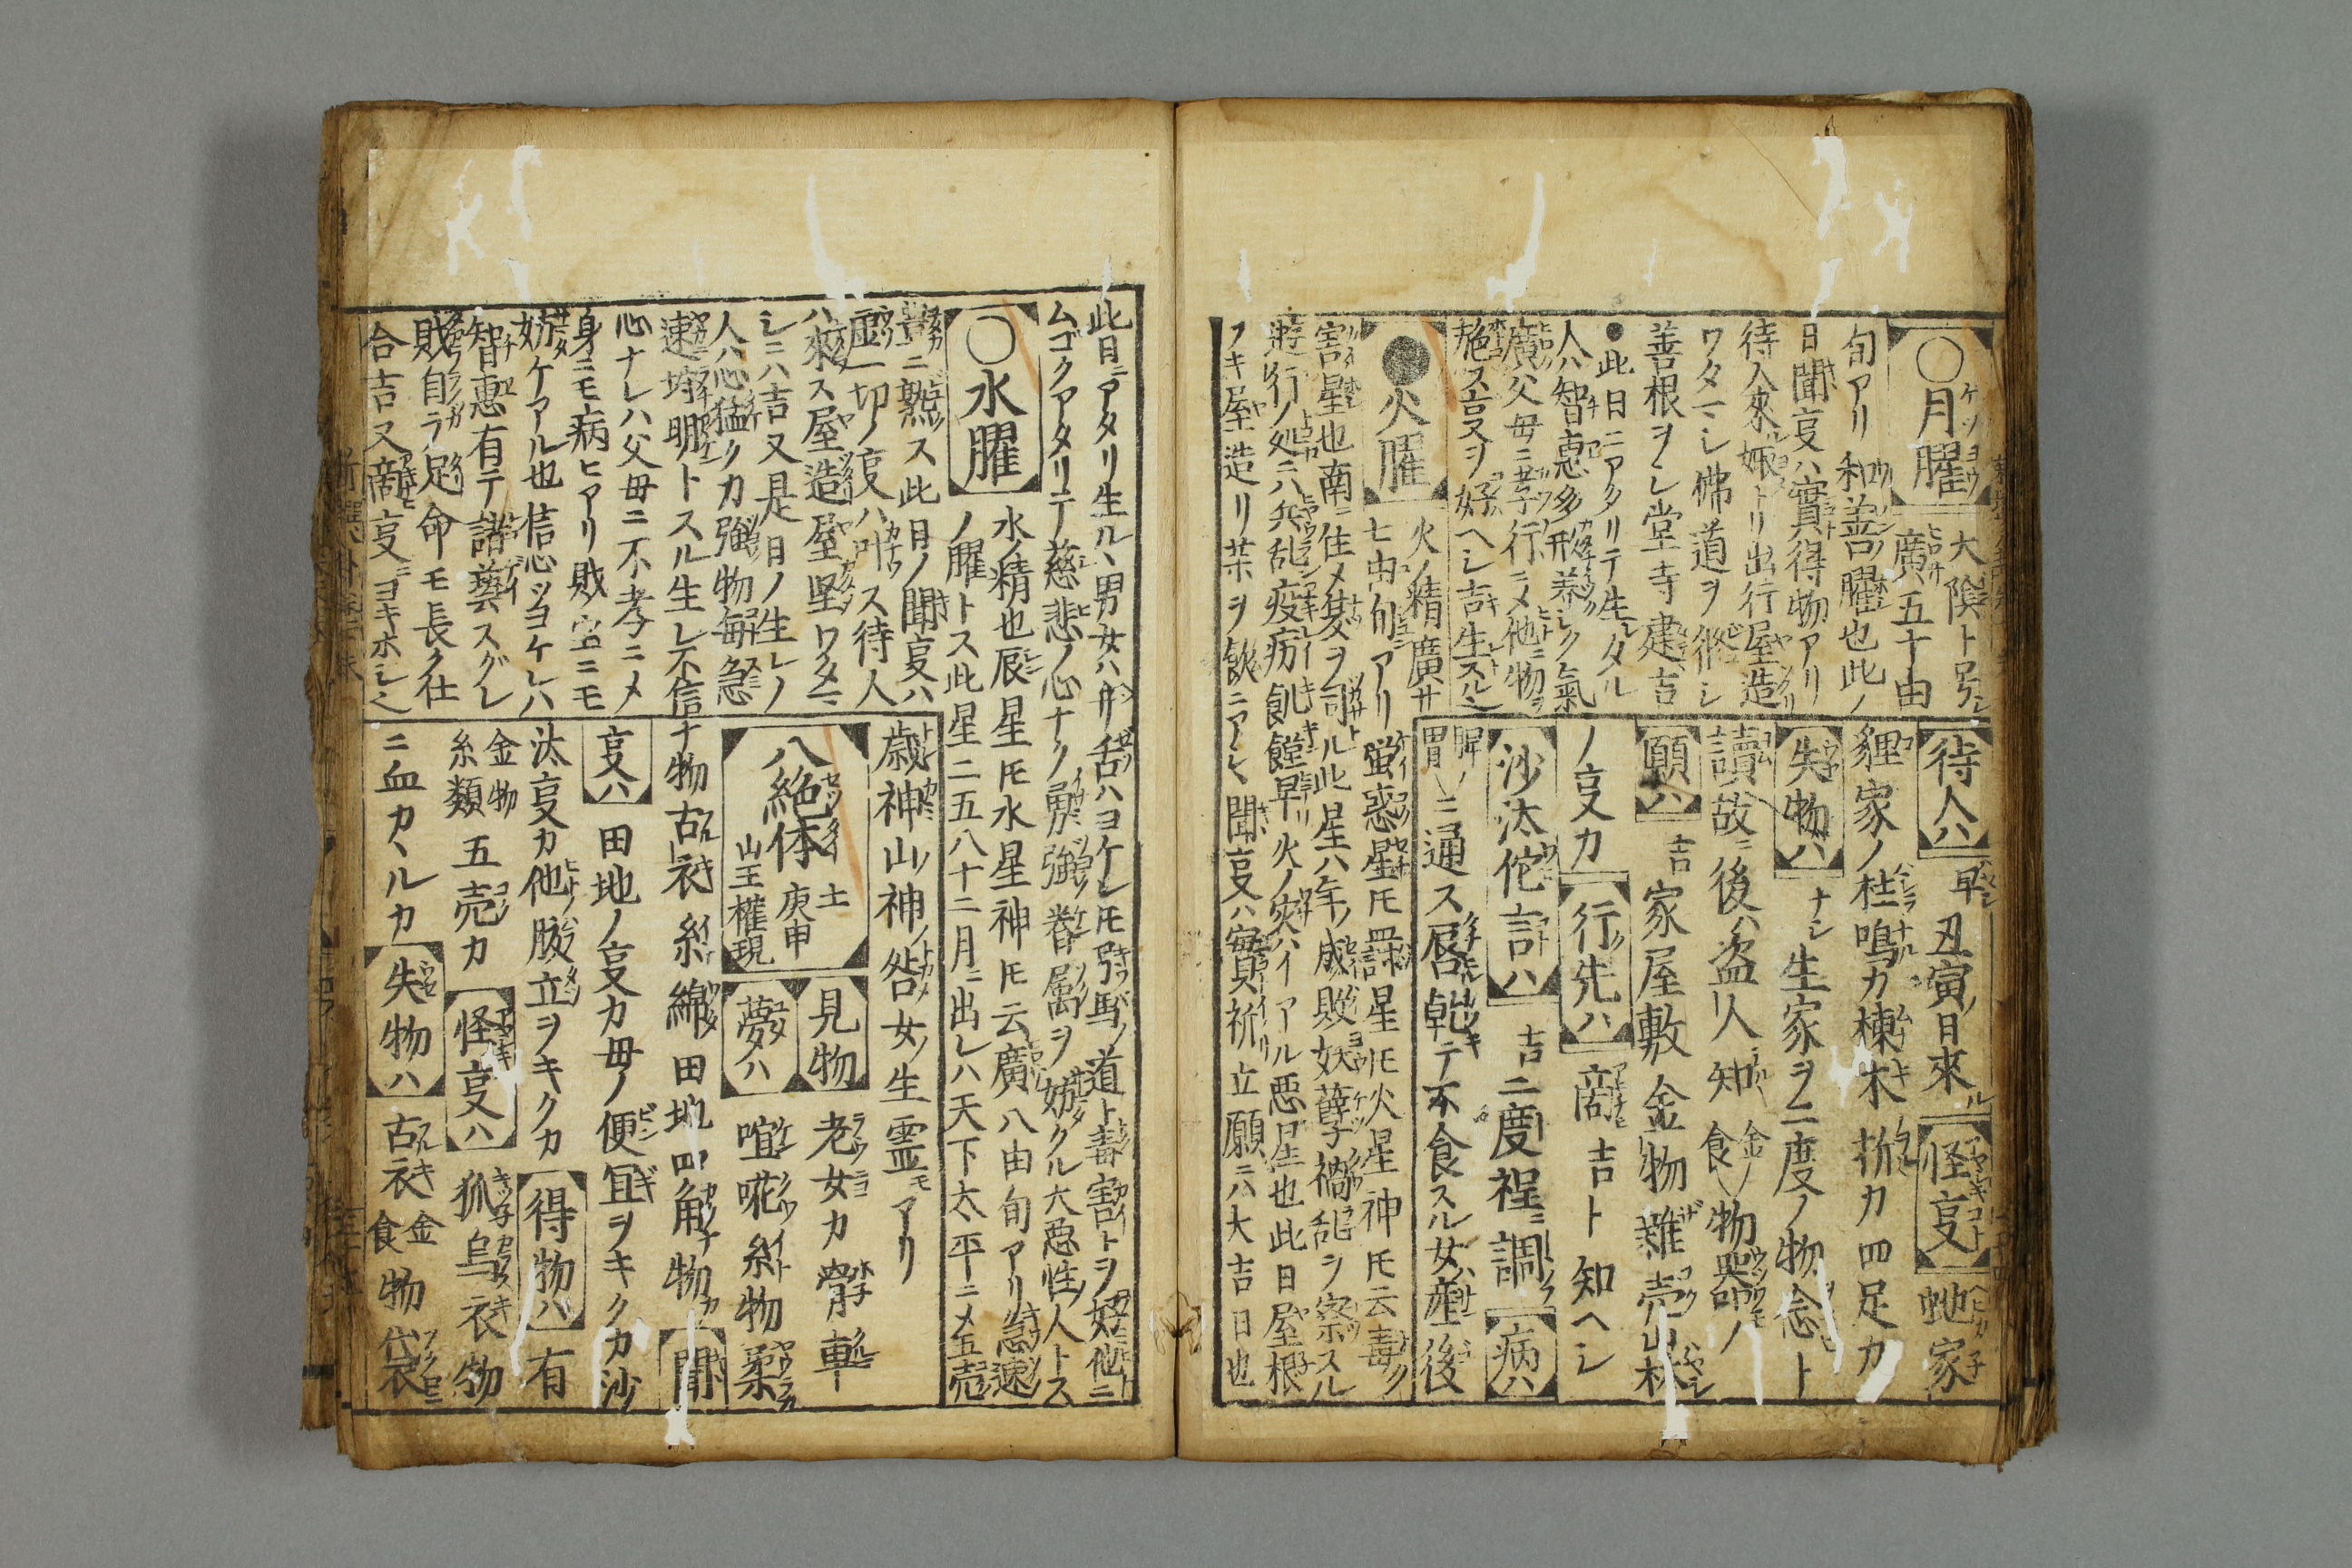 ○月曜 大陰ト号ス
廣八五十由
旬アリ和善ノ曜也此ノ
日聞㕝ハ實得物アリ
待人來ル嫁トリ出行屋造リ
ワタマシ佛道ヲ修シ
善根ヲシ堂寺建吉
●此日ニアタリテ生レタル
人ハ智惠多形美シク氣
廣父母ニ孝行ニメ他ニ物ヲ
施ス㕝ヲ好ヘシ吉生スル也
●火曜 火ノ精廣サ
七由旬アリ
待人ハ 早 丑寅ノ日來ル 怪㕝 虵家
狸家ノ柱鳴カ棟木折カ四足カ
失物ハ ナシ 生家ヲ二度ノ物念ト
讀故ニ後ハ盗人知 金食ノ物器ノ
願ハ 吉 家屋敷金物雜売山林
ノ㕝カ 行先ハ 商吉ト知ヘシ
沙汰侘言ハ 吉 二度程ニ調 病ハ
脾胃ノニ通ス唇乾テ不食スル女ハ産後
螢惑星氏罰星氏火星神氏云毒ノ
割星也南ニ住メ夏ヲ司ル此星ハ年ノ成敗妖孽禍乱ヲ察スル
遊行ノ処ニハ兵乱疫病飢饉旱リ火ノ災ハイアル悪星也此日屋根
フキ屋造リ茶ヲ飲ニアシヽ聞㕝ハ實祈リ立願ニハ大吉日也
此日ニアタリ生ルヽ男女ハ弁舌ハヨケレ氏弓馬ノ道ト害割トヲ好他ニ
ムゴクアタリテ慈悲ノ心ナク勇強ノ眷属ヲ妨クル大惡性ノ人トス
○水曜 水ノ精也辰星氏水星神氏云廣八由旬アリ急速
ノ曜トス此星二五八十二月ニ出レハ天下太平ニメ五売
豊ニ熟ス此日ノ聞㕝ハ
虚一切ノ㕝ハ叶ス待人
ハ來ス屋造屋堅ワタマ
シニハ吉又是日ノ生レノ
人ハ心猛クカ強物毎急
速埒明トスル生レ不信
心ナレハ父母ニ不孝ニメ
身ニモ病ヒアリ賎宝ニモ
妨ケアル也信心ツヨケレハ
智惠有テ諸藝スグレ
賎自ラ足命モ長ク仕
合吉又商㕝ニヨキホシ也
歳神山ノ神ノ咎女ノ生霊モアリ
八絶体 土 庚申 山王権現
見物 老女カ 車
夢ハ 喧嘩糸物柔
ナ物古衣糸綿田地四角物カ 聞
㕝ハ 田地ノ㕝カ母ノ便宜ヲキクカ沙
汰㕝カ他ノ腹立ヲキクカ 得物ハ 有
金物糸類 五売カ 怪㕝ハ 狐烏衣物
ニ血カヽルカ 失物ハ 古衣金食物袋